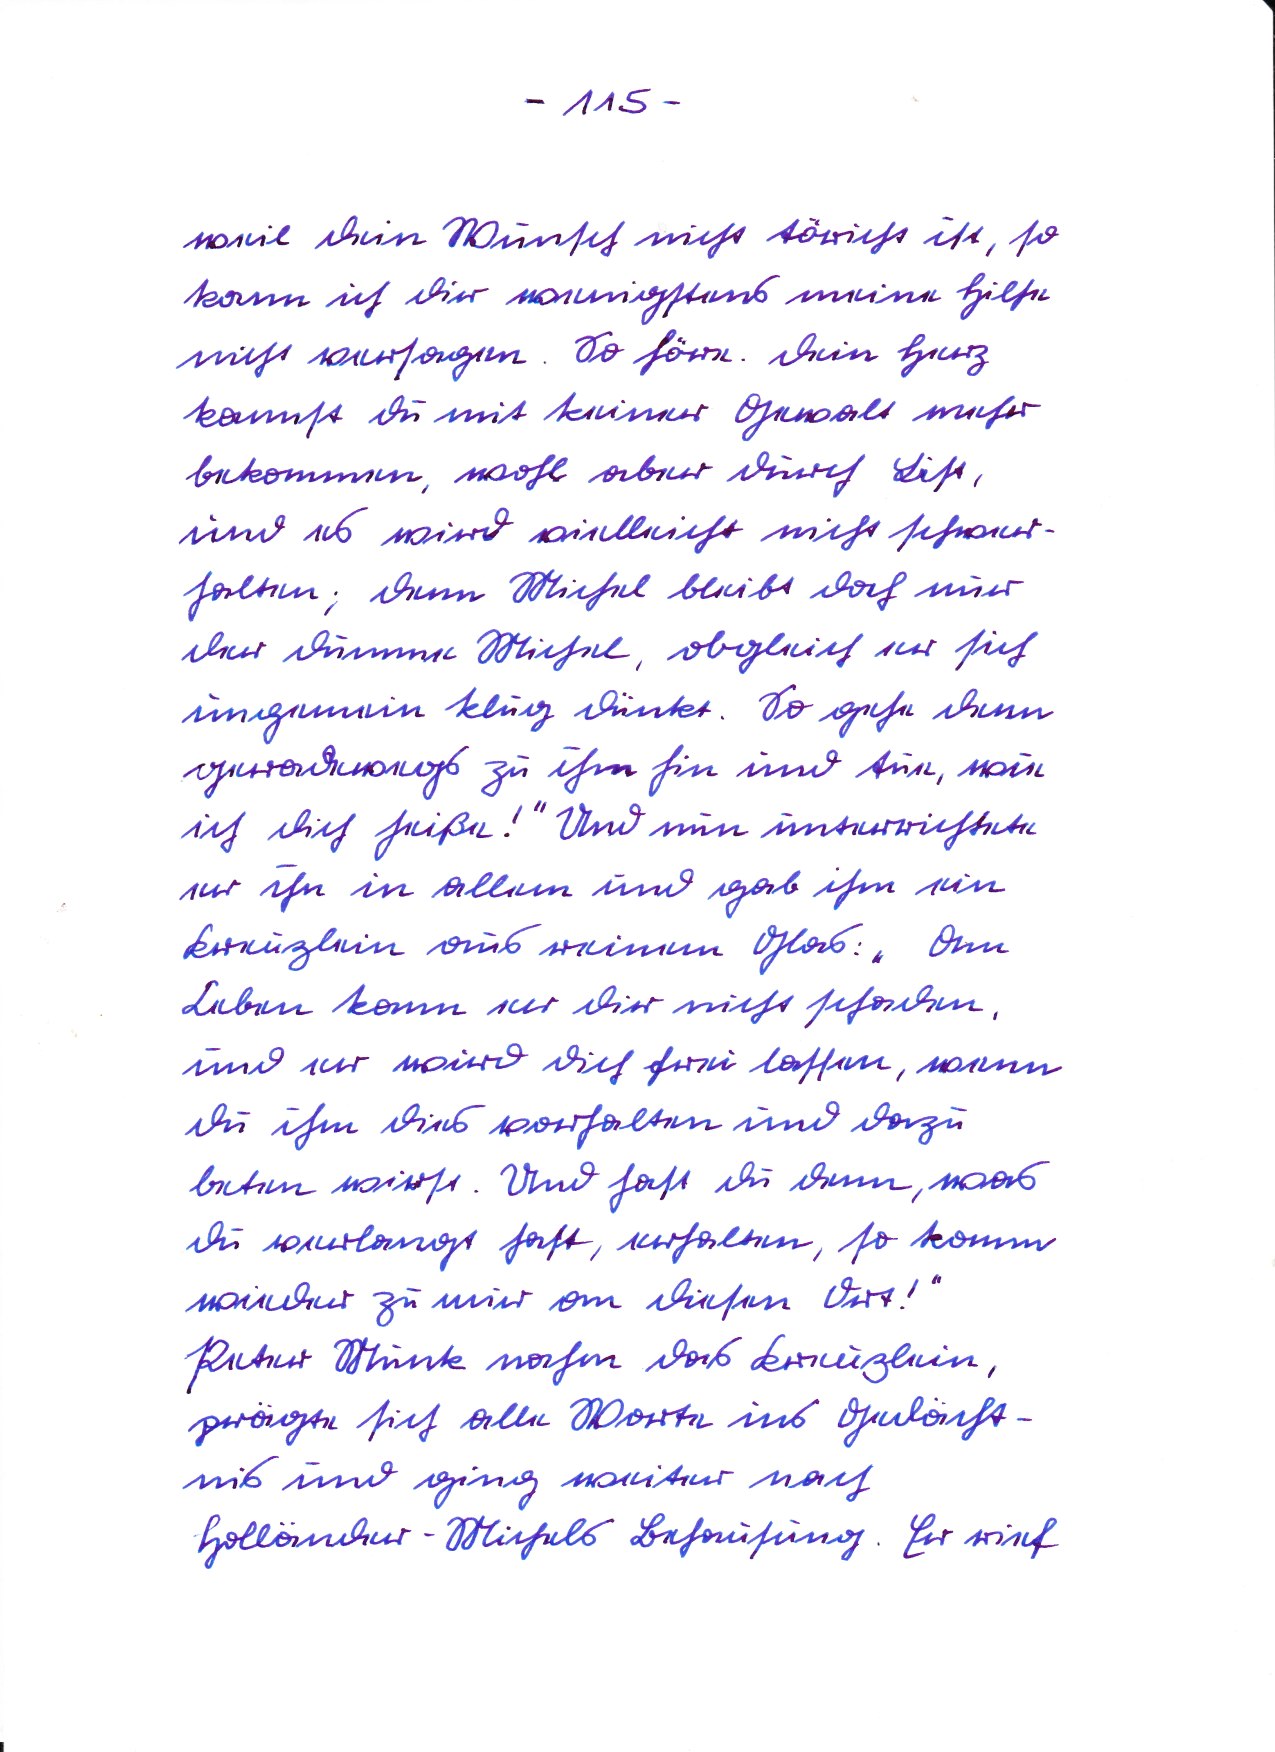 - 115 -
weil dein Wunsch nicht töricht ist, so
kann ich dir wenigstens meine Hilfe
nicht versagen. So höre. dein Herz
kannst du mit keiner Gewalt mehr
bekommen, wohl aber durch List,
und es wird vielleicht nicht schwer-
halten; denn Michel bleibt doch nur
der dumme Michel, obgleich er sich
ungemein klug dünkt. So gehe denn
geradewegs zu ihm hin und tue, wie
ich dich heiße!" Und nun unterrichtete
er ihn in allem und gab ihm ein
Kreuzlein aus reinem Glas: „ Am
Leben kann er dir nicht schaden,
und er wird dich frei lassen, wenn
du ihm dies vorhalten und dazu
beten wirst. Und hast du denn, was
du verlangt hast, erhalten, so komm
wieder zu mir an diesen Ort!"
Peter Munk nahm das Kreuzlein,
prägte sich alle Worte ins Gedächt-
nis und ging weiter nach
Holländer-Michels Behausung. Er rief